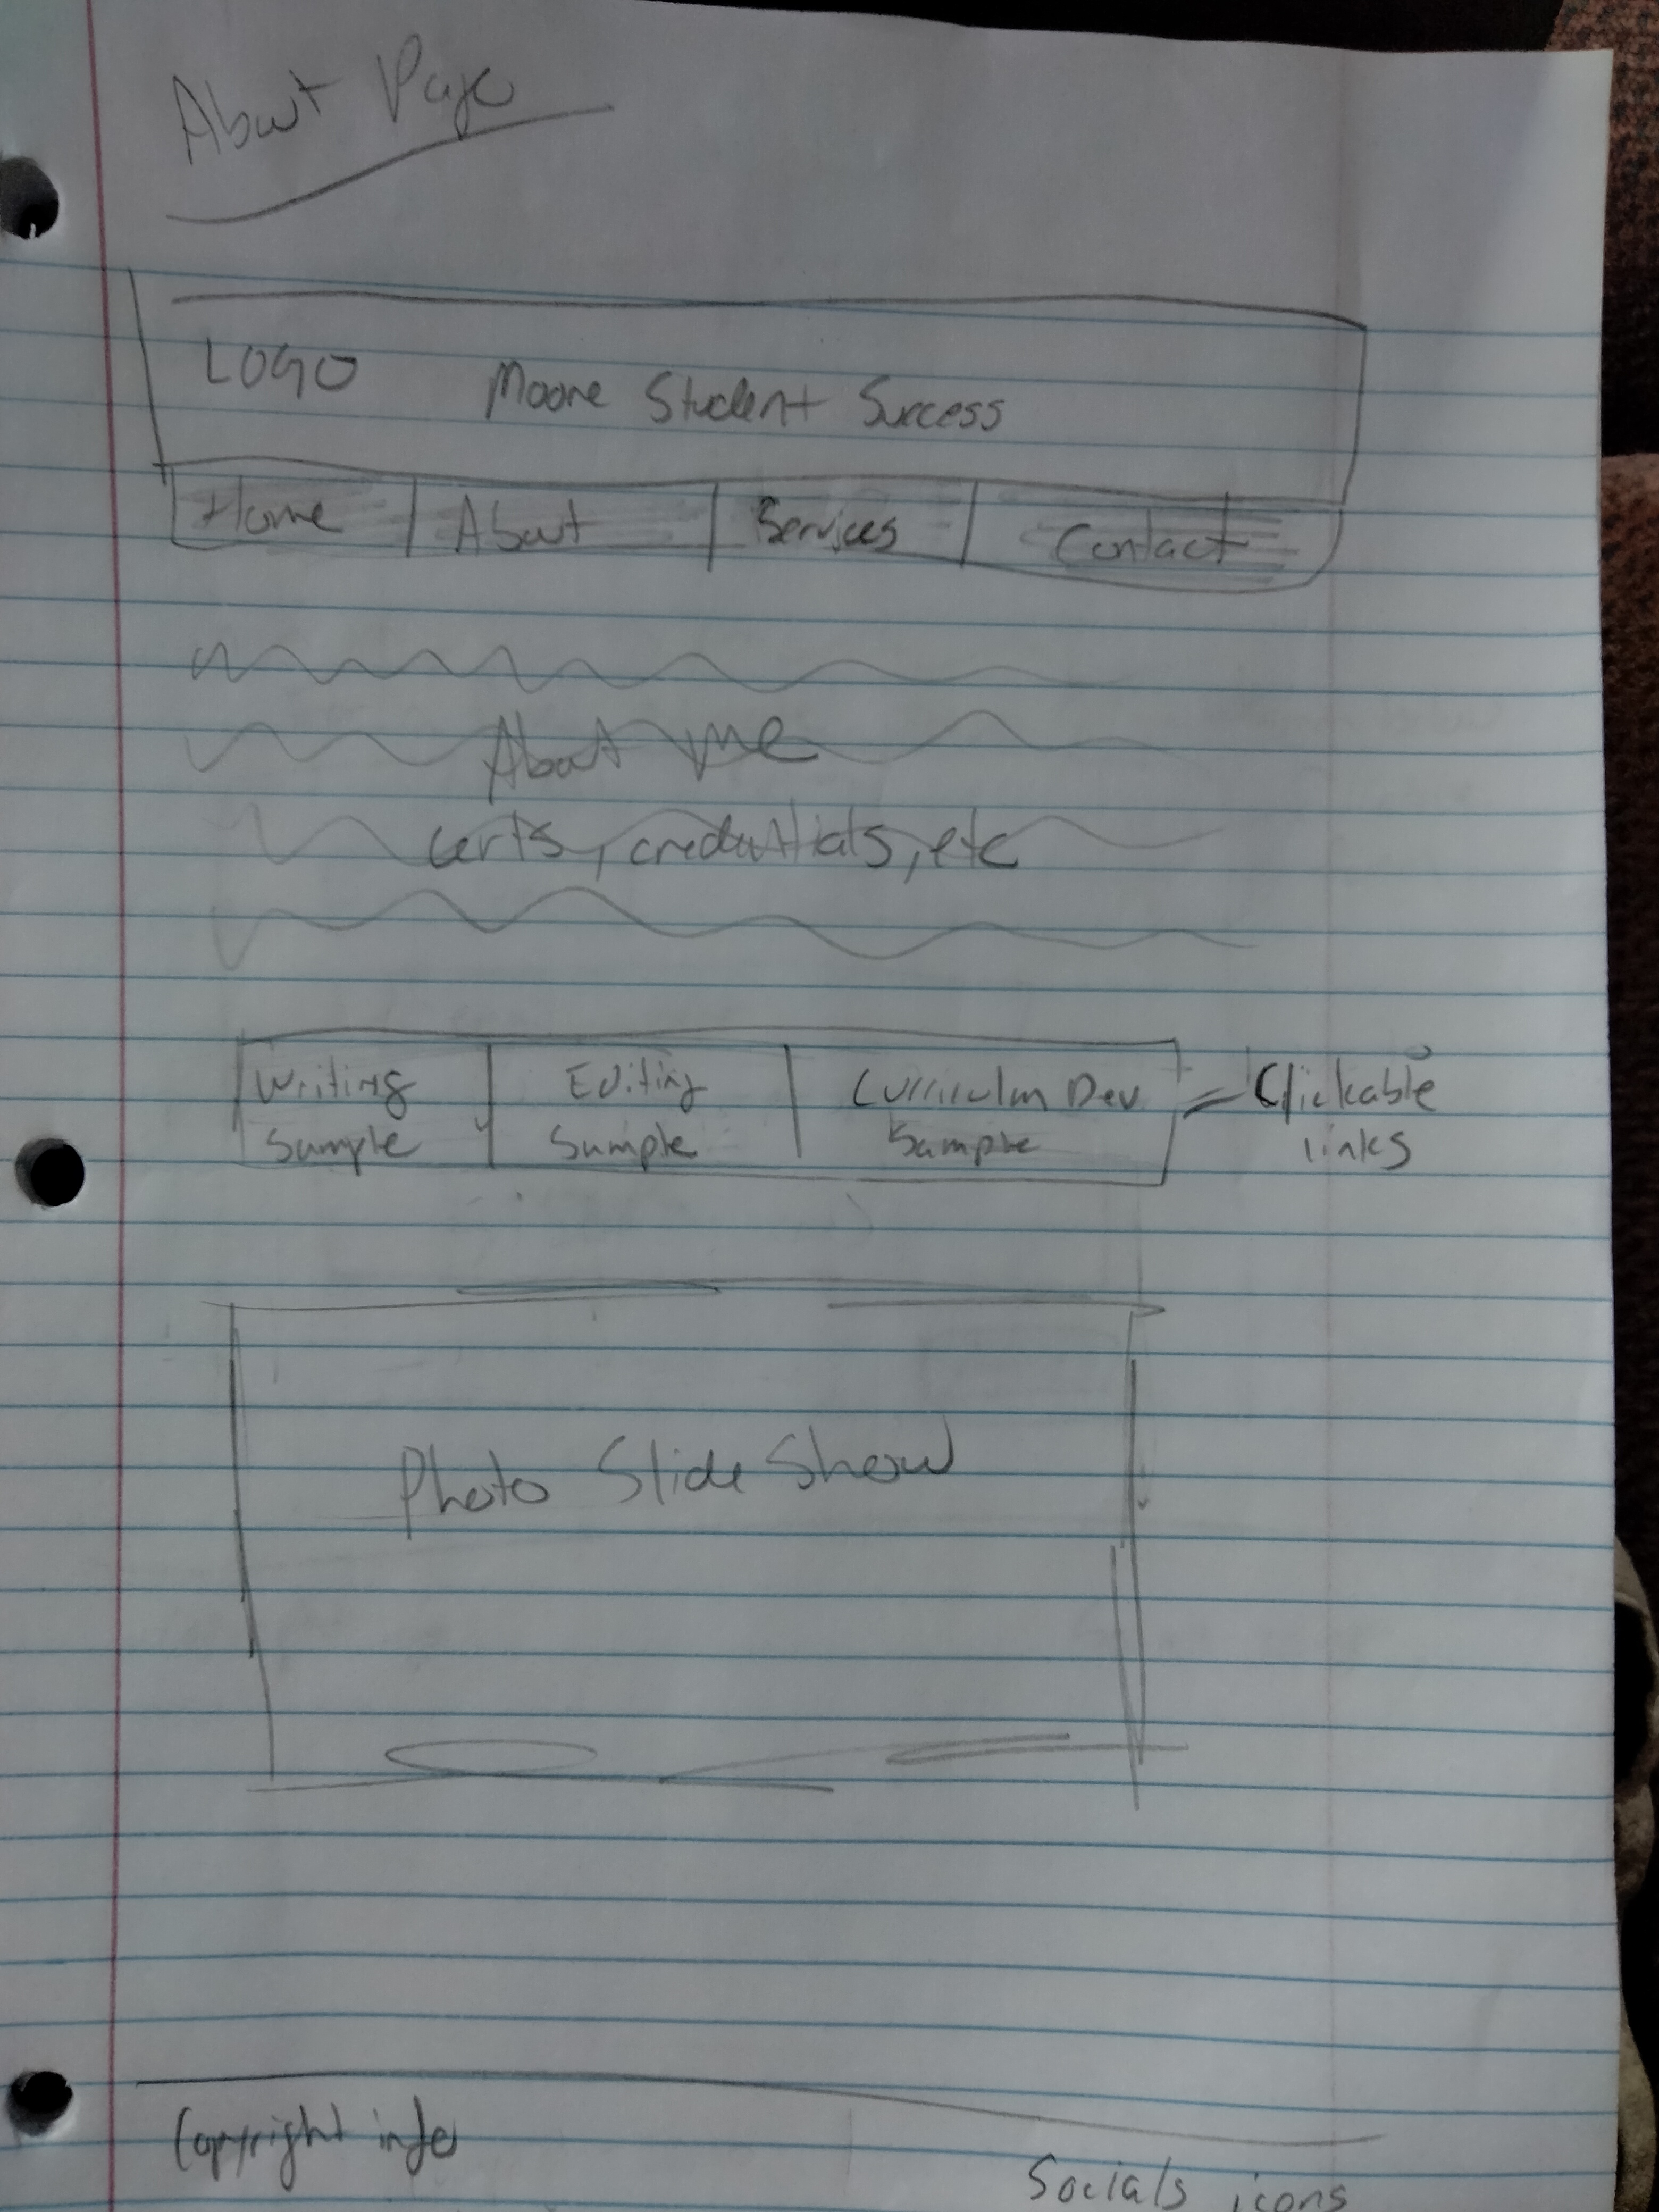 About Page
LOGO Moore Student Success
Home About Services Contact
About me
certs, credentials, etc
Writing Sample
Editing Sample
Curriculum Dev Sample
= Clickable links
Photo Slide Show
Copyright info
Socials icons